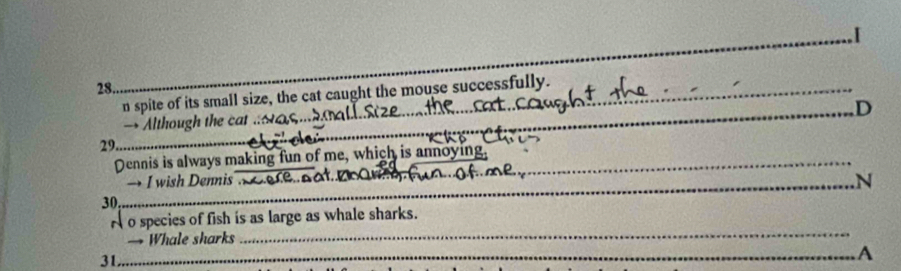 I
28.
n spite of its small size, the cat caught the mouse successfully.
→ Although the cat was small size the cat caught the
D
29.
Dennis is always making fun of me, which is annoying.
→ I wish Dennis were not fun of me
N
30.
o species of fish is as large as whale sharks.
→ Whale sharks
31. A